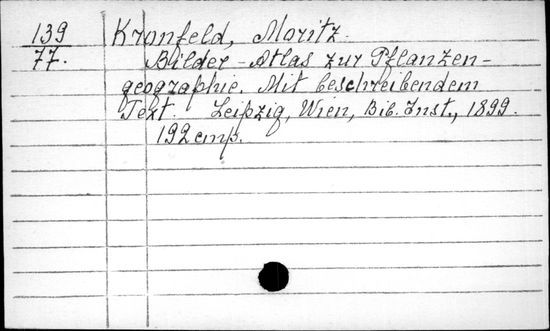 139 Kronfeld, Moritz.
77. Bilder-Atlas zur Pflanzen-
geographie. Mit beschreibendem
Text. Leipzig, Wien, Bib. Inst., 1899.
192 стр.